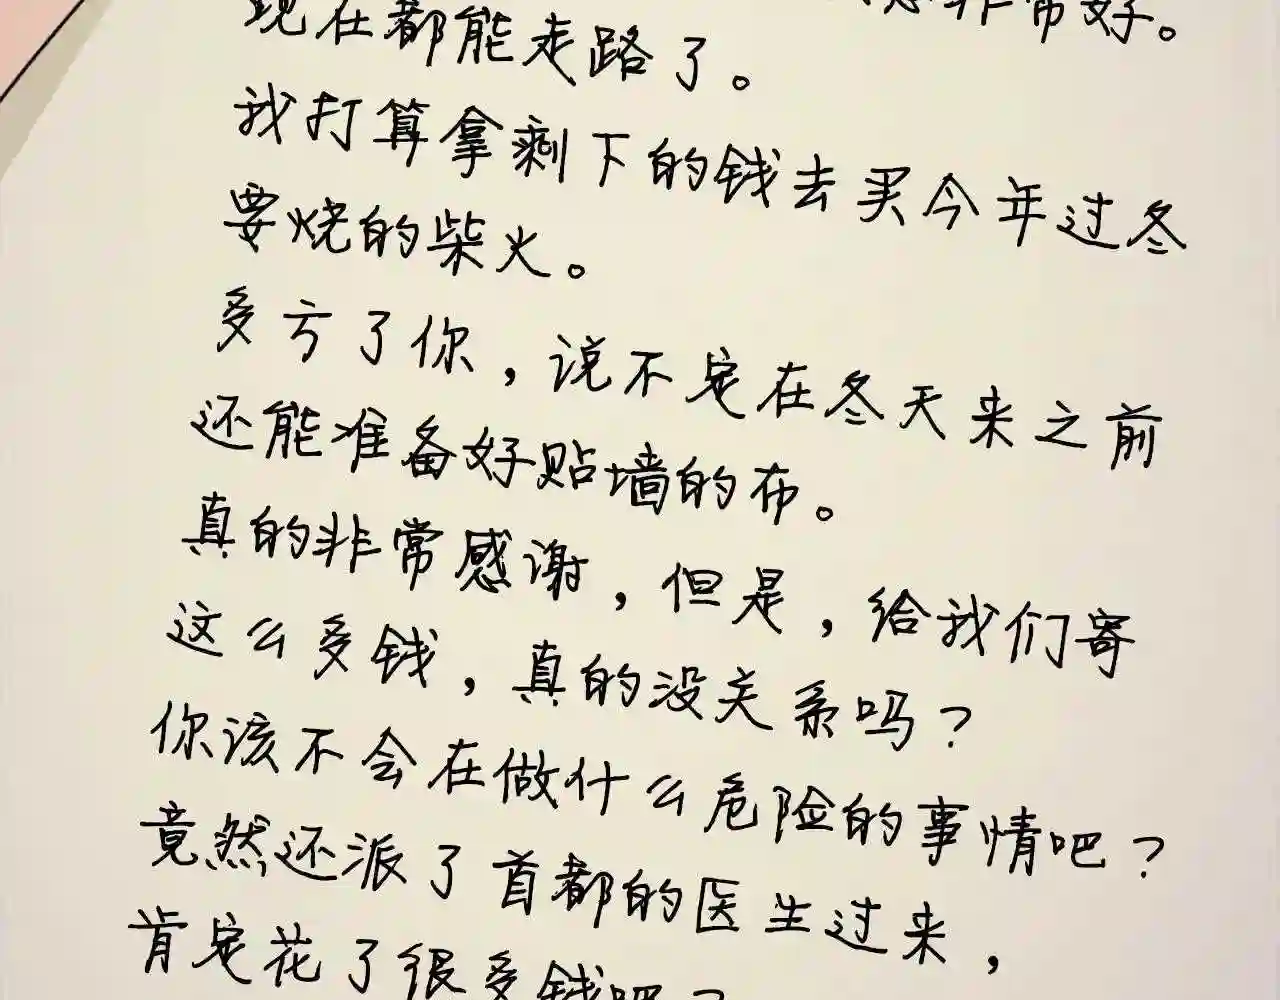 非常好。
现在都能走路了。
我打算拿剩下的钱去买今年过冬
要烧的柴火。
多亏了你，说不定在冬天来之前
还能准备好贴墙的布。
真的非常感谢，但是，给我们寄
这么多钱，真的没关系吗？
你该不会在做什么危险的事情吧？
竟然还派了首都的医生过来，
肯定花了很多钱吧？